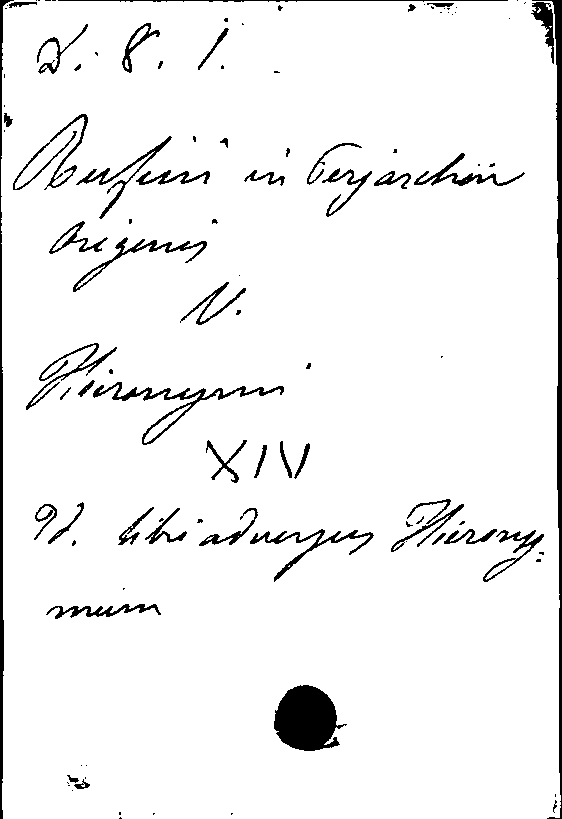 D. 8. 1.
Rufini in Periarchon
Origenis
V.
Hieronymi
XIV
Id. libri adversus Hierony=
mum